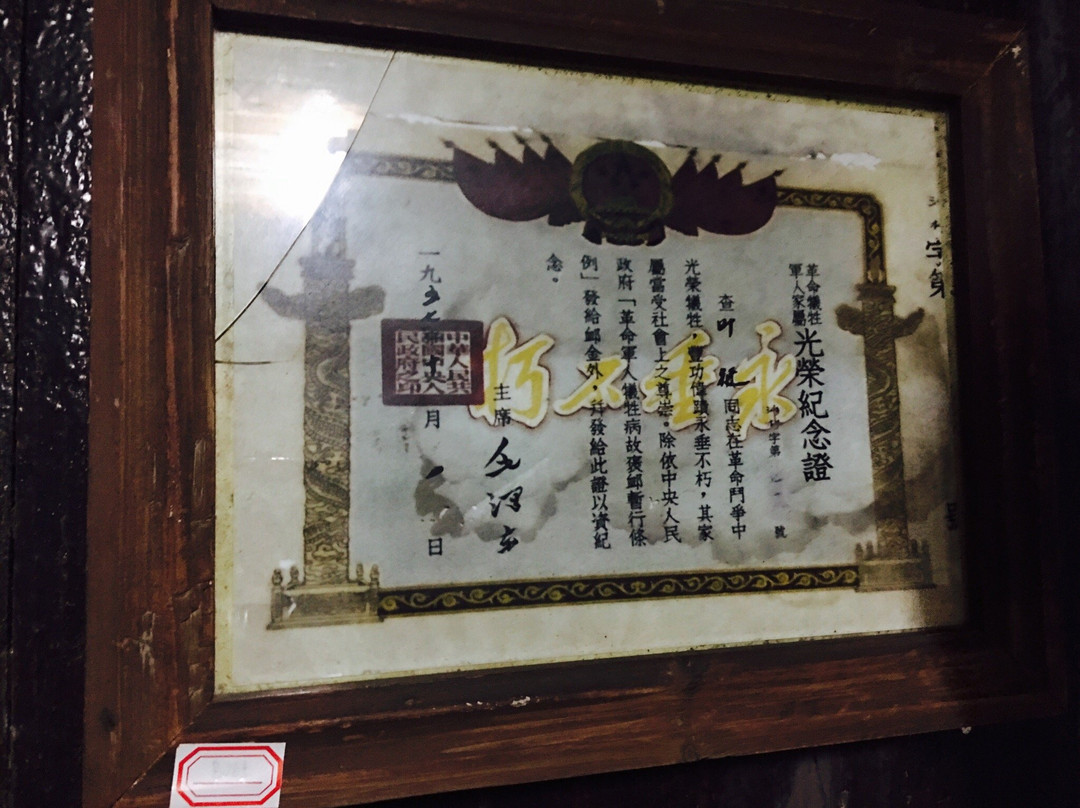 革命犧牲
軍人家屬
光榮紀念證
字第 號
查叩 同志在革命鬥爭中
光榮犧牲，豐功偉蹟永垂不朽，其家
屬當受社會上之尊崇。除依中央人民
政府「革命軍人犧牲病故褒卹暫行條
例」發給卹金外，并發給此證以資紀
念。
主席 毛澤東
一九五 年 月一日
永垂不朽
中華人民共
和國中央人
民政府之印
字第